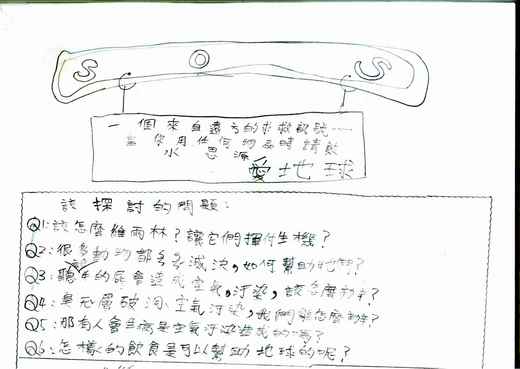 S O S
一個來自遠方的求救訊號……
當您用任何物品時請飲
水思源
愛地球
該探討的問題：
Q1:該怎麼維雨林？讓它們擇付生機？
Q2:很多動物都多多減決,如何幫助牠們？
Q3:聽的屁會造成空氣,汙染,該怎麼辦？
Q4:臭氧層破洞空氣汙染,我們能怎麼辦？
Q5:那有人會生病是空氣汙染造成的嗎？
Q6:怎樣的飲食是可以幫助地球的呢？